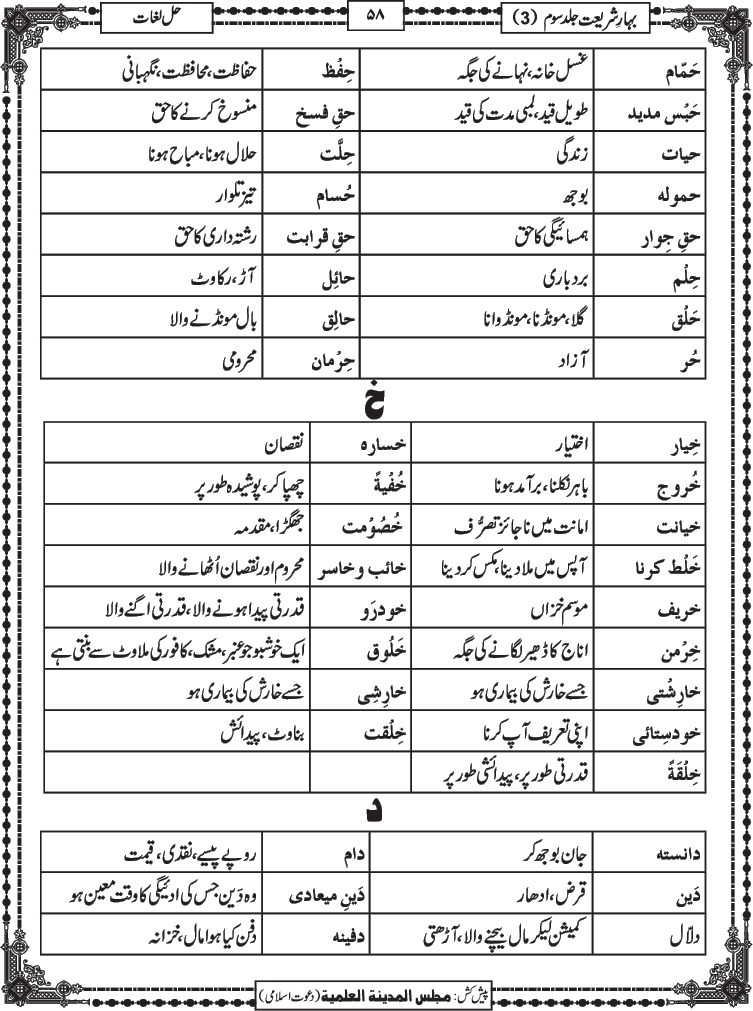 بہارِ شریعت جلد سوم (3) ۵۸ حل لغات
حَمّام غسل خانہ، نہانے کی جگہ حِفْظ حفاظت، محافظت، نگہبانی
حَبْس مدید طویل قید، لمبی مدت کی قید حقِ فسخ منسوخ کرنے کا حق
حیات زندگی حِلَّت حلال ہونا، مباح ہونا
حموله بوجھ حُسام تیز تلوار
حقِ جِوار ہمسائیگی کا حق حقِ قرابت رشتہ داری کا حق
حِلْم بردباری حائِل آڑ، رکاوٹ
حَلْق گلا، مونڈنا، مونڈوانا حالِق بال مونڈنے والا
حُر آزاد حِرْمان محرومی
خ
خِیار اختیار خسارہ نقصان
خُروج باہر نکلنا، برآمد ہونا خُفْیةً چھپا کر، پوشیدہ طور پر
خیانت امانت میں ناجائز تصرُّف خُصُوْمت جھگڑا، مقدمہ
خَلْط کرنا آپس میں ملا دینا، مِکس کر دینا خائب و خاسر محروم اور نقصان اُٹھانے والا
خریف موسم خزاں خودرَو قدرتی پیدا ہونے والا، قدرتی اگنے والا
خِرْمن اناج کا ڈھیر لگانے کی جگہ خَلُوق ایک خوشبو جو عنبر، مشک، کافور کی ملاوٹ سے بنتی ہے
خارِشْتی جسے خارش کی بیماری ہو خارِشِی جسے خارش کی بیماری ہو
خودسِتائی اپنی تعریف آپ کرنا خِلْقت بناوٹ، پیدائش
خِلْقَةً قدرتی طور پر، پیدائشی طور پر
د
دانستہ جان بوجھ کر دام روپے پیسے، نقدی، قیمت
دَین قرض، ادھار دَینِ میعادی وہ دَین جس کی ادئیگی کا وقت معین ہو
دلّال کمیشن لیکر مال بیچنے والا، آڑھتی دفینہ دفن کیا ہوا مال، خزانہ
پیش کش: مجلس المدينة العلمية (دعوت اسلامی)